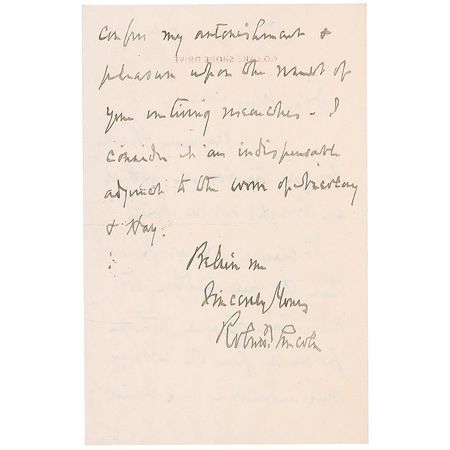 confess my astonishment &
pleasure upon the result of
your untiring researches. I
consider it an indispensable
adjunct to the work of Nicolay
& Hay.
Believe me
Sincerely Yours
Robert T. Lincoln
60 LAKE SHORE DRIVE